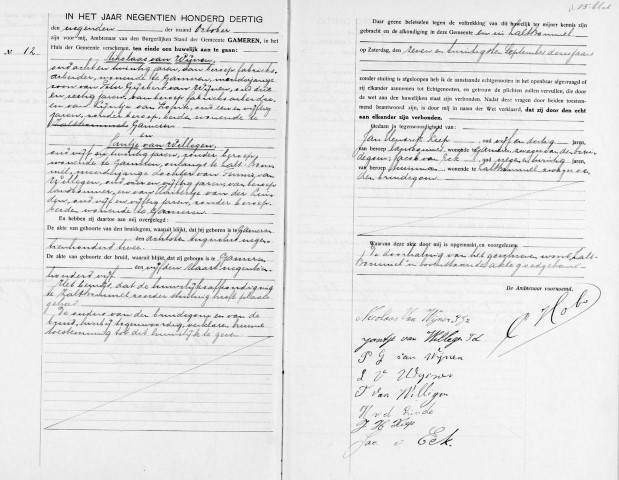 IN HET JAAR NEGENTIEN HONDERD DERTIG
den negenden der maand October
zijn voor mij, Ambtenaar van den Burgerlijken Stand der Gemeente GAMEREN, in het
Huis der Gemeente verschenen, ten einde een huwelijk aan te gaan:
N° 12.
Nikolaas van Wijnen,
oud acht en twintig jaren, van beroep fabrieks
arbeider, wonende te Gameren, meerderjarige
zoon van Peter Gijsbert van Wijnen, oud
en zestig jaren, van beroep fabrieksarbeider,
en van
jaren, zonder beroep, beiden wonende te
Zaltbommel Gameren
en
Jantje van Willegen,
oud vijf en twintig jaren, zonder beroep,
wonende te Gameren, onlangs te Zalt-Bom-
mel, meerderjarige dochter van Teunis van
Willegen, oud en vijftig jaren, van beroep
landbouwer, en van van der Lin-
den, oud vijf en vijftig jaren, zonder beroep,
beiden wonende te Gameren.
En hebben zij daartoe aan mij overgelegd:
De akte van geboorte van den bruidegom, waaruit blijkt, dat hij geboren is te Gameren
den achtsten negen-
tienhonderd twee.
De akte van geboorte der bruid, waaruit blijkt, dat zij geboren is te Gameren
den vijfden Maart negentien-
honderd vijf.
Het bewijs, dat de huwelijksafkondiging
te Zaltbommel zonder stuiting heeft plaats
gehad.
De ouders van den bruidegom en van de
bruid, hierbij tegenwoordig, verklaren hunne
toestemming tot dit huwelijk te geven.
Daar geene beletselen tegen de voltrekking van dit huwelijk ter mijner kennis zijn
gebracht en de afkondiging in deze Gemeente en in Zaltbommel
op Zaterdag, den zeven en twintigste September dezes jaars
zonder stuiting is afgeloopen heb ik de aanstaande echtgenooten in het openbaar afgevraagd of
zij elkander aannemen tot Echtgenooten, en getrouw de plichten zullen vervullen, die door
de wet aan den huwelijken staat zijn verbonden. Nadat deze vragen door beiden toestem-
mend beantwoord zijn, is door mij in naam der Wet verklaard, dat zij door den echt
aan elkander zijn verbonden.
Gedaan in tegenwoordigheid van:
Jan Hendrik oud vijf en dertig jaren,
van beroep landbouwer, wonende te Gameren, zwager van den brui-
degom; Jacob van Eck, oud negen en twintig jaren,
van beroep wonende te Zaltbommel, zwager van
den bruidegom.
Waarvan deze akte door mij is opgemaakt en voorgelezen.
De doorhaling van het geschreven woord „Zalt-
bommel" in bovenstaande akte goedgekeurd.
De Ambtenaar voornoemd,
Nicolaas Van Wijnen
Jantje van Willegen
P G van Wijnen
v Wijnen
T van Willigen
H v d Linde
J H
Jac v Eck.